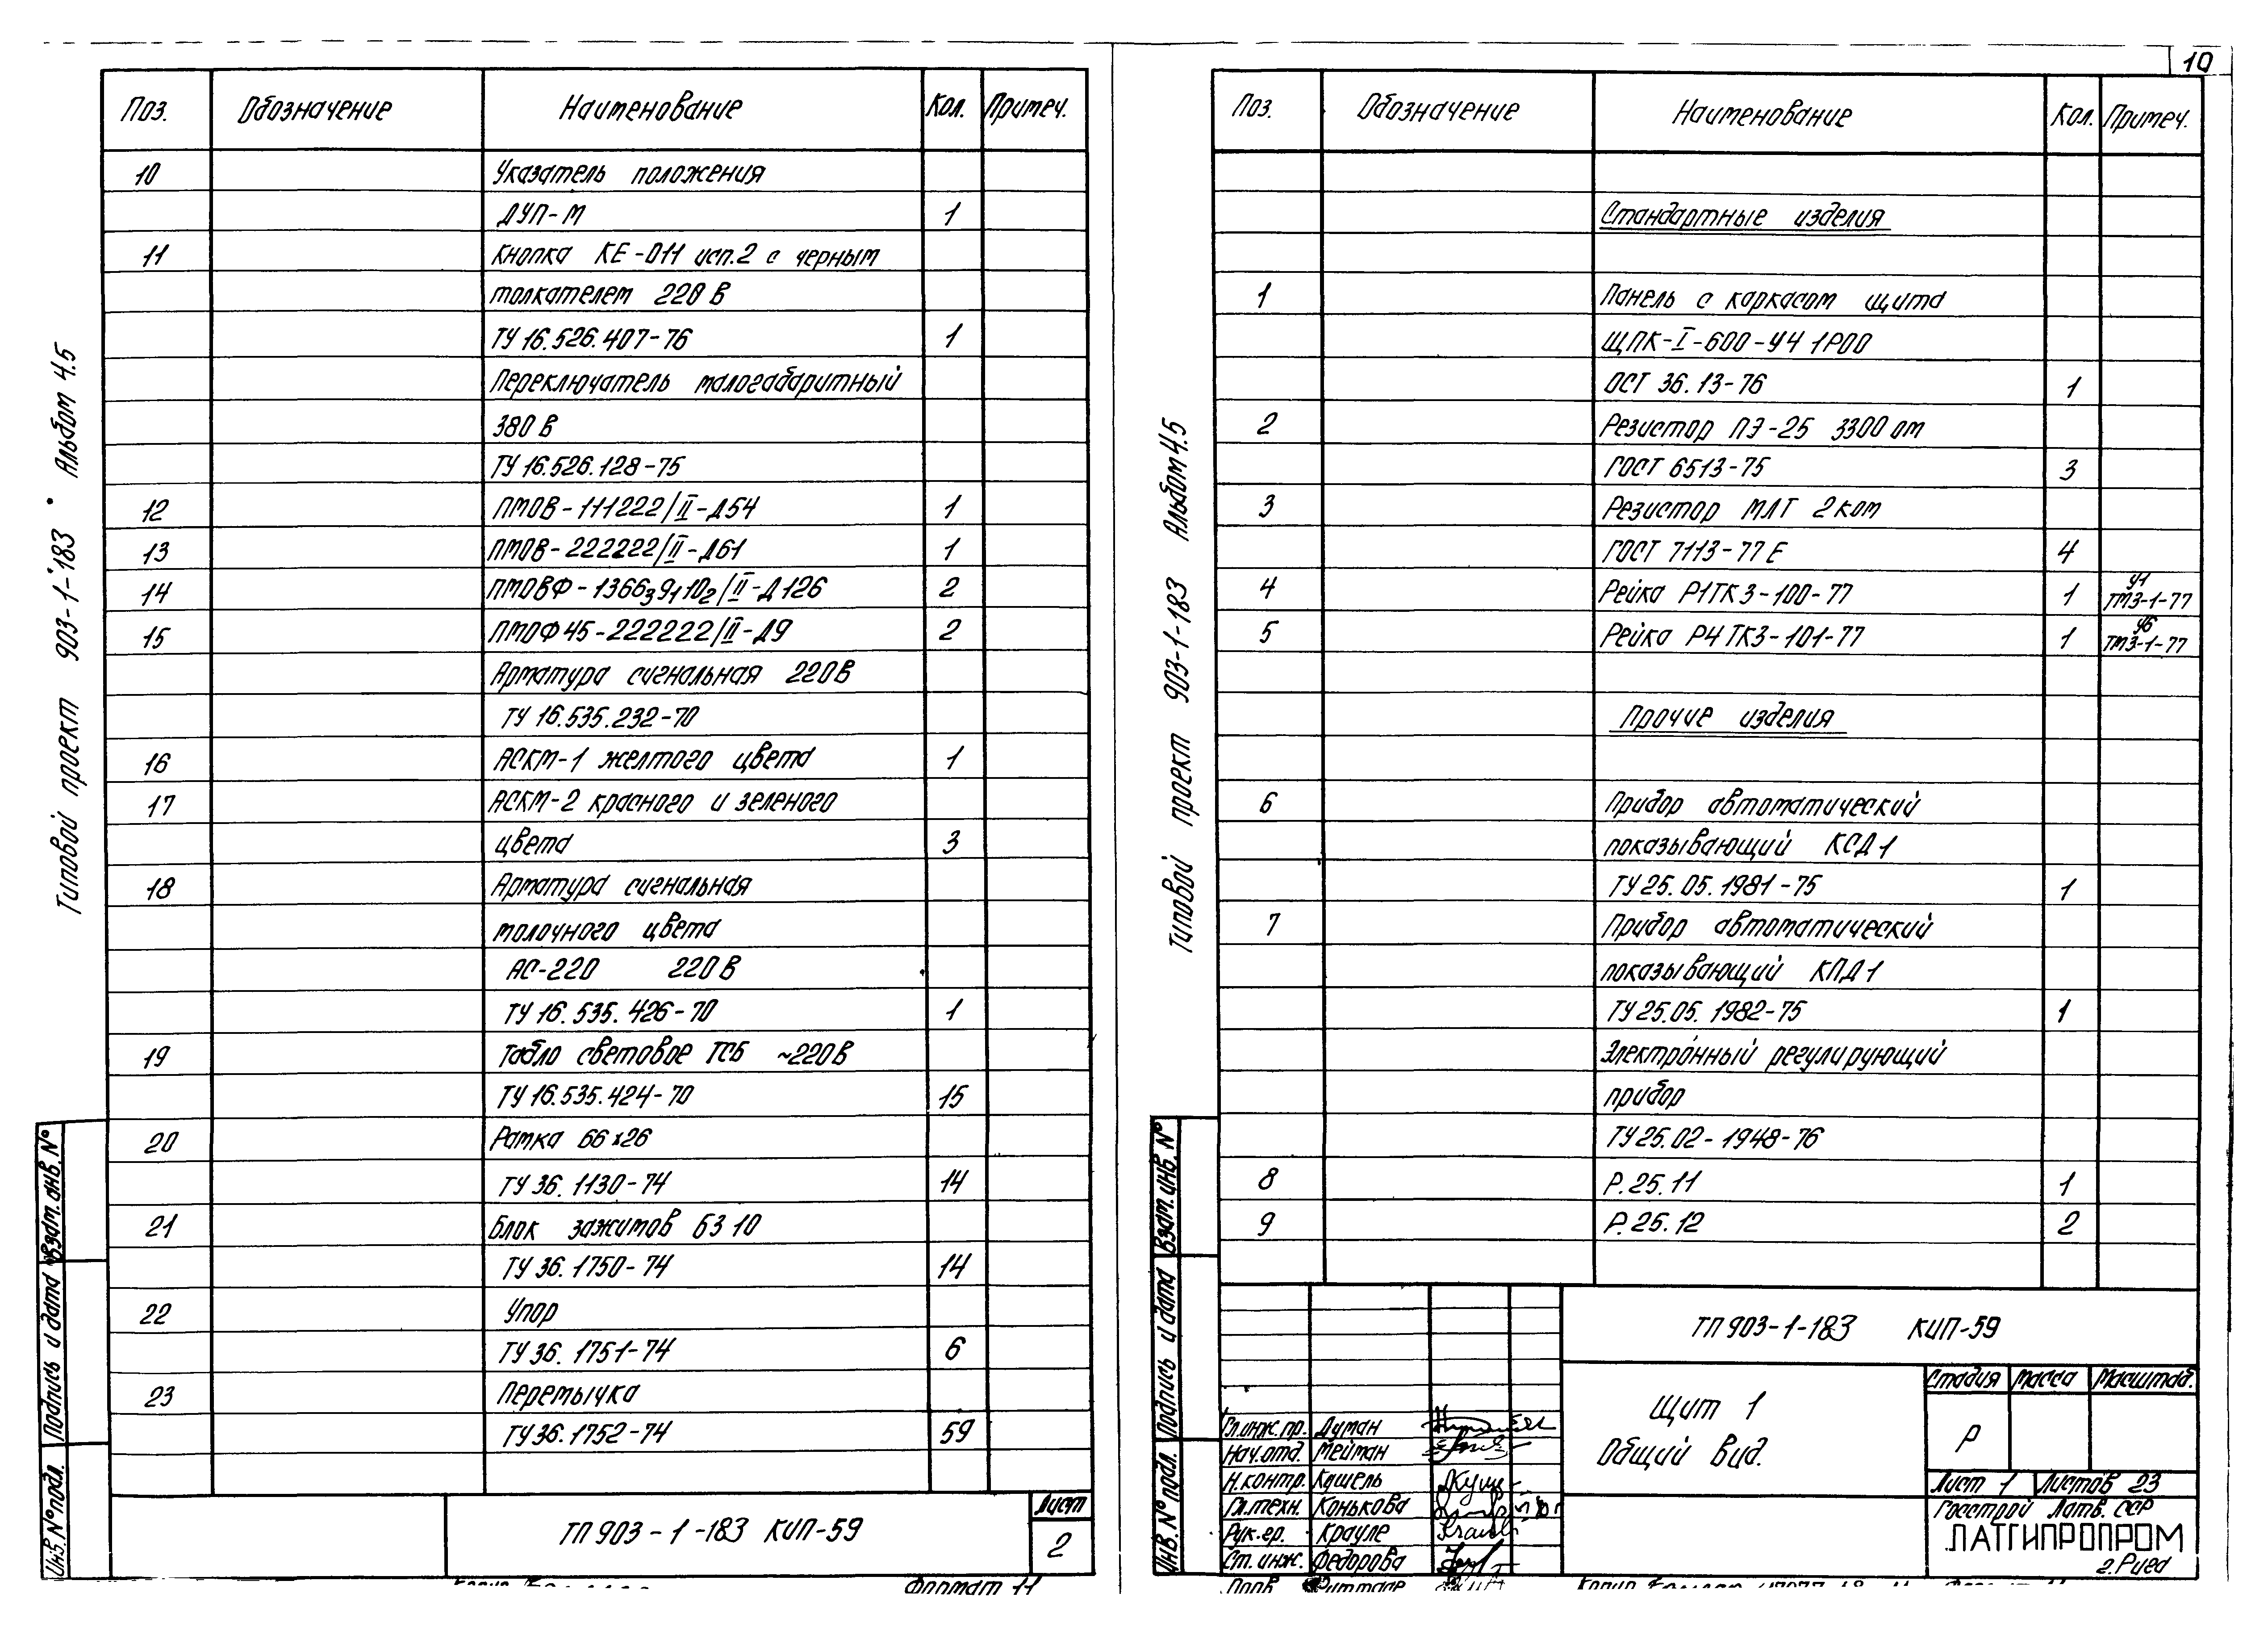 10
Типовой проект 903-1-183 Альбом 4.5
Поз. Обозначение Наименование Кол. Примеч.
10 Указатель положения
ДУП-М 1
11 Кнопка КЕ-011 исп.2 с черным
толкателем 220 В
ТУ 16.526.407-76 1
Переключатель малогабаритный
380 В
ТУ 16.526.128-75
12 ПМОВ-111222/II-Д54 1
13 ПМОВ-222222/II-Д61 1
14 ПМОВФ-1366₃9₁10₂/II-Д126 2
15 ПМОФ45-222222/II-Д9 2
Арматура сигнальная 220В
ТУ 16.535.232-70
16 АСКМ-1 желтого цвета 1
17 АСКМ-2 красного и зеленого
цвета 3
18 Арматура сигнальная
молочного цвета
АС-220 220 В
ТУ 16.535.426-70 1
19 Табло световое ТСБ ~220В
ТУ 16.535.424-70 15
20 Рамка 66х26
ТУ 36.1130-74 14
21 Блок зажимов БЗ 10
ТУ 36.1750-74 14
22 Упор
ТУ 36.1751-74 6
23 Перемычка
ТУ 36.1752-74 59
Взам. инв. №
Подпись и дата
Инв. № подл.
ТП 903-1-183 КИП-59
Лист
2
Формат 11
Типовой проект 903-1-183 Альбом 4.5
Поз. Обозначение Наименование Кол. Примеч.
Стандартные изделия
1 Панель с каркасом щита
ЩПК-I-600-У4 1Р00
ОСТ 36.13-76 1
2 Резистор ПЭ-25 3300 ом
ГОСТ 6513-75 3
3 Резистор МЛТ 2 ком
ГОСТ 7113-77 Е 4
4 Рейка Р1ТК3-100-77 1 У1 ТМ3-1-77
5 Рейка Р4 ТК3-101-77 1 У6 ТМ3-1-77
Прочие изделия
6 Прибор автоматический
показывающий КСД1
ТУ 25.05.1981-75 1
7 Прибор автоматический
показывающий КПД1
ТУ 25.05.1982-75 1
Электронный регулирующий
прибор
ТУ 25.02-1948-76
8 Р.25.11 1
9 Р.25.12 2
Взам. инв. №
Подпись и дата
Инв. № подл.
ТП 903-1-183 КИП-59
Щит 1
Общий вид.
Стадия Масса Масштаб.
Р
Лист 1 Листов 23
Госстрой Латв. ССР
ЛАТГИПРОПРОМ
г. Рига
Гл.инж.пр. Думан
Нач.отд. Мейман
Н.контр. Кашель
Гл.техн. Конькова
Рук.гр. Крауле
Ст.инж. Федорова